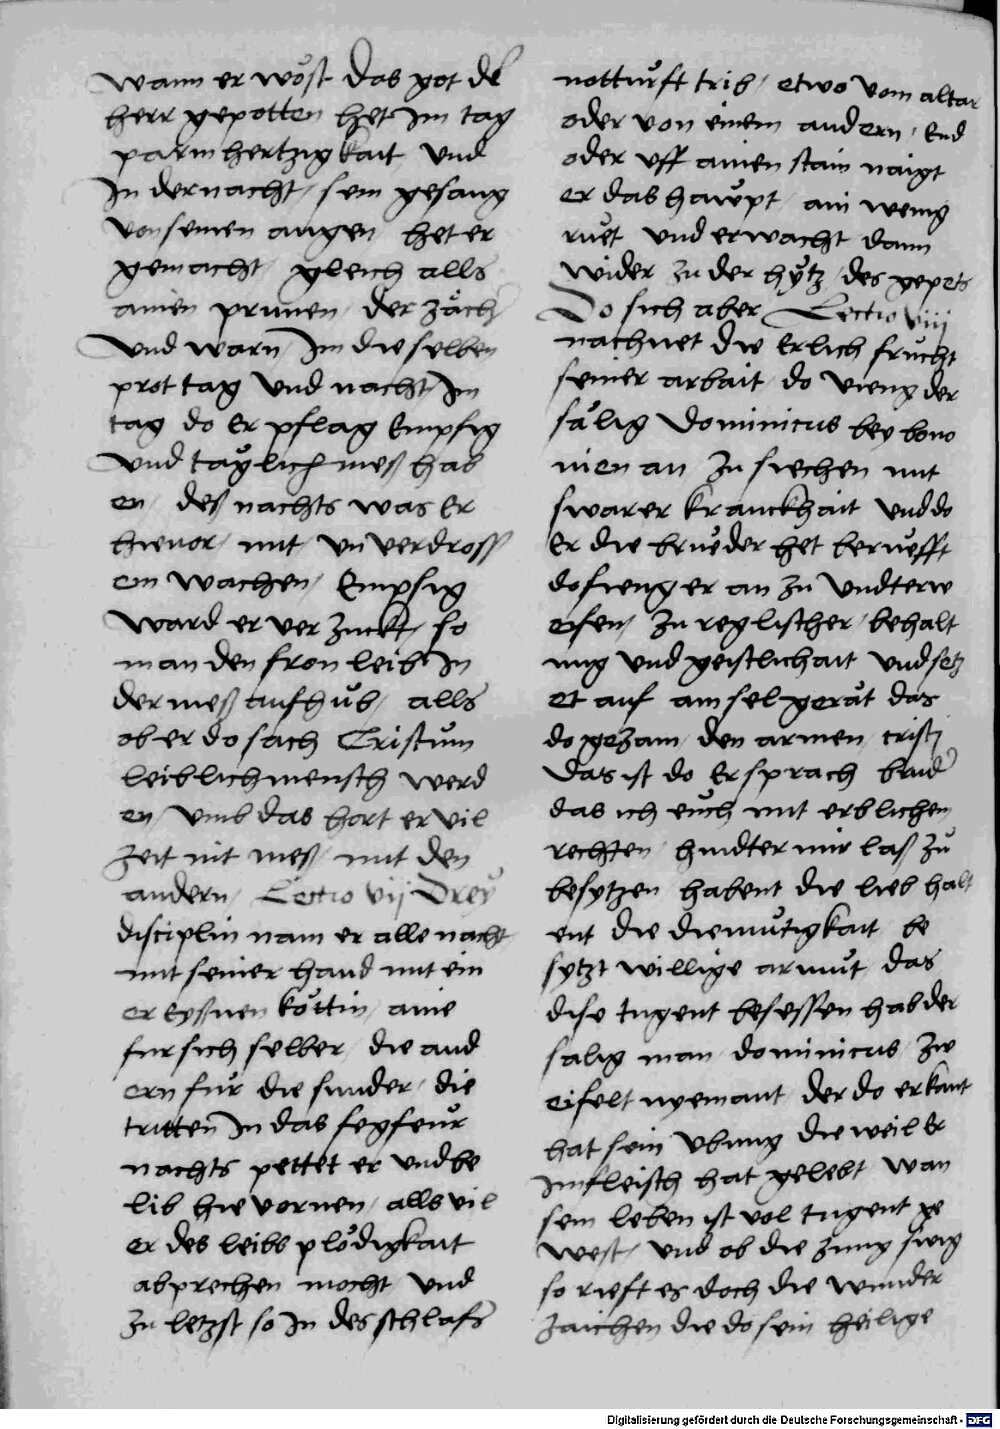 wann er wöst das got der
herr gepotten het Im tag
parmhertzigkait Vnd
In der nacht / sein gesang
Von seinen augen het er
gemacht / gleich alls
ainen prunen / der zäch
Vnd warn / Im die selben
prot tag Vnd nacht / Im
tag do Er pflag Empsig
Vnd täglich mess hab
en / des nachts was Er
hieuor / mit / Vnverdross
en wachen / Empsig
Ward er verzuckt / so
man den fronleib In
der mess aufhůb / alls
ob er do sach Cristum
leiblich mensch werd
en / Vmb das hort er vil
zeit nit mess / mit den
andern / Lectio vij Dreÿ
disciplin nam er alle nacht
mit seiner hand mit ein
er Eyssnen kettin / aine
fur sich selber / die and
ern für die sunder / die
tritten In das fegfeür
nachts pettet er Vnd be
lib hie vornen / alls vil
er des leibs plödigkait
abprechen mocht / Vnd
zu letzst so In des schlafs
notturft trib / etwo vom altar
oder von einem andern / End
oder vff ainen stain naigt
er das haupt / ain wenig
ruet Vnd erwacht dann
wider zu der hÿtz / des gepets
Do sich aber Lectio viij
nachnet die Erlich frucht
seiner arbait / do vieng der
sälig Dominicus bey bono
nien an zu siechen mit
swarer kranckhait Vnd do
Er die brueder het beruefft
do fieng er an zu Vndterw
eisen / zu reglischer / behalt
ung Vnd geistlichait Vnd setz
et auf ain selgerät das
do gezam / den armen / cristj
Das ist do Er sprach brüd
das ich euch mit erblichen
rechten / hindter mir lass zů
besytzen habent die lieb halt
ent die diemütigkait be
sytzt willige armůt / das
dise tugent besessen hab der
salig man / dominicus / zw
eifelt nyemant / der do erkant
hat sein Vbung die weil Er
Im fleisch hat gelebt / wan
sein leben ist vol tugent ge
west / Vnd ob die zung swig
so rieft es doch die wunder
zaichen die do sein heilige
Digitalisierung gefördert durch die Deutsche Forschungsgemeinschaft - DFG